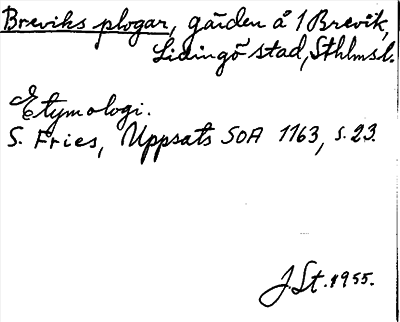 Breviks plogar, gården å 1 Brevik,
Lidingö stad, Sthlmsl.
Etymologi.
S. Fries, Uppsats SOA 1163, s. 23.
J. St. 1955.